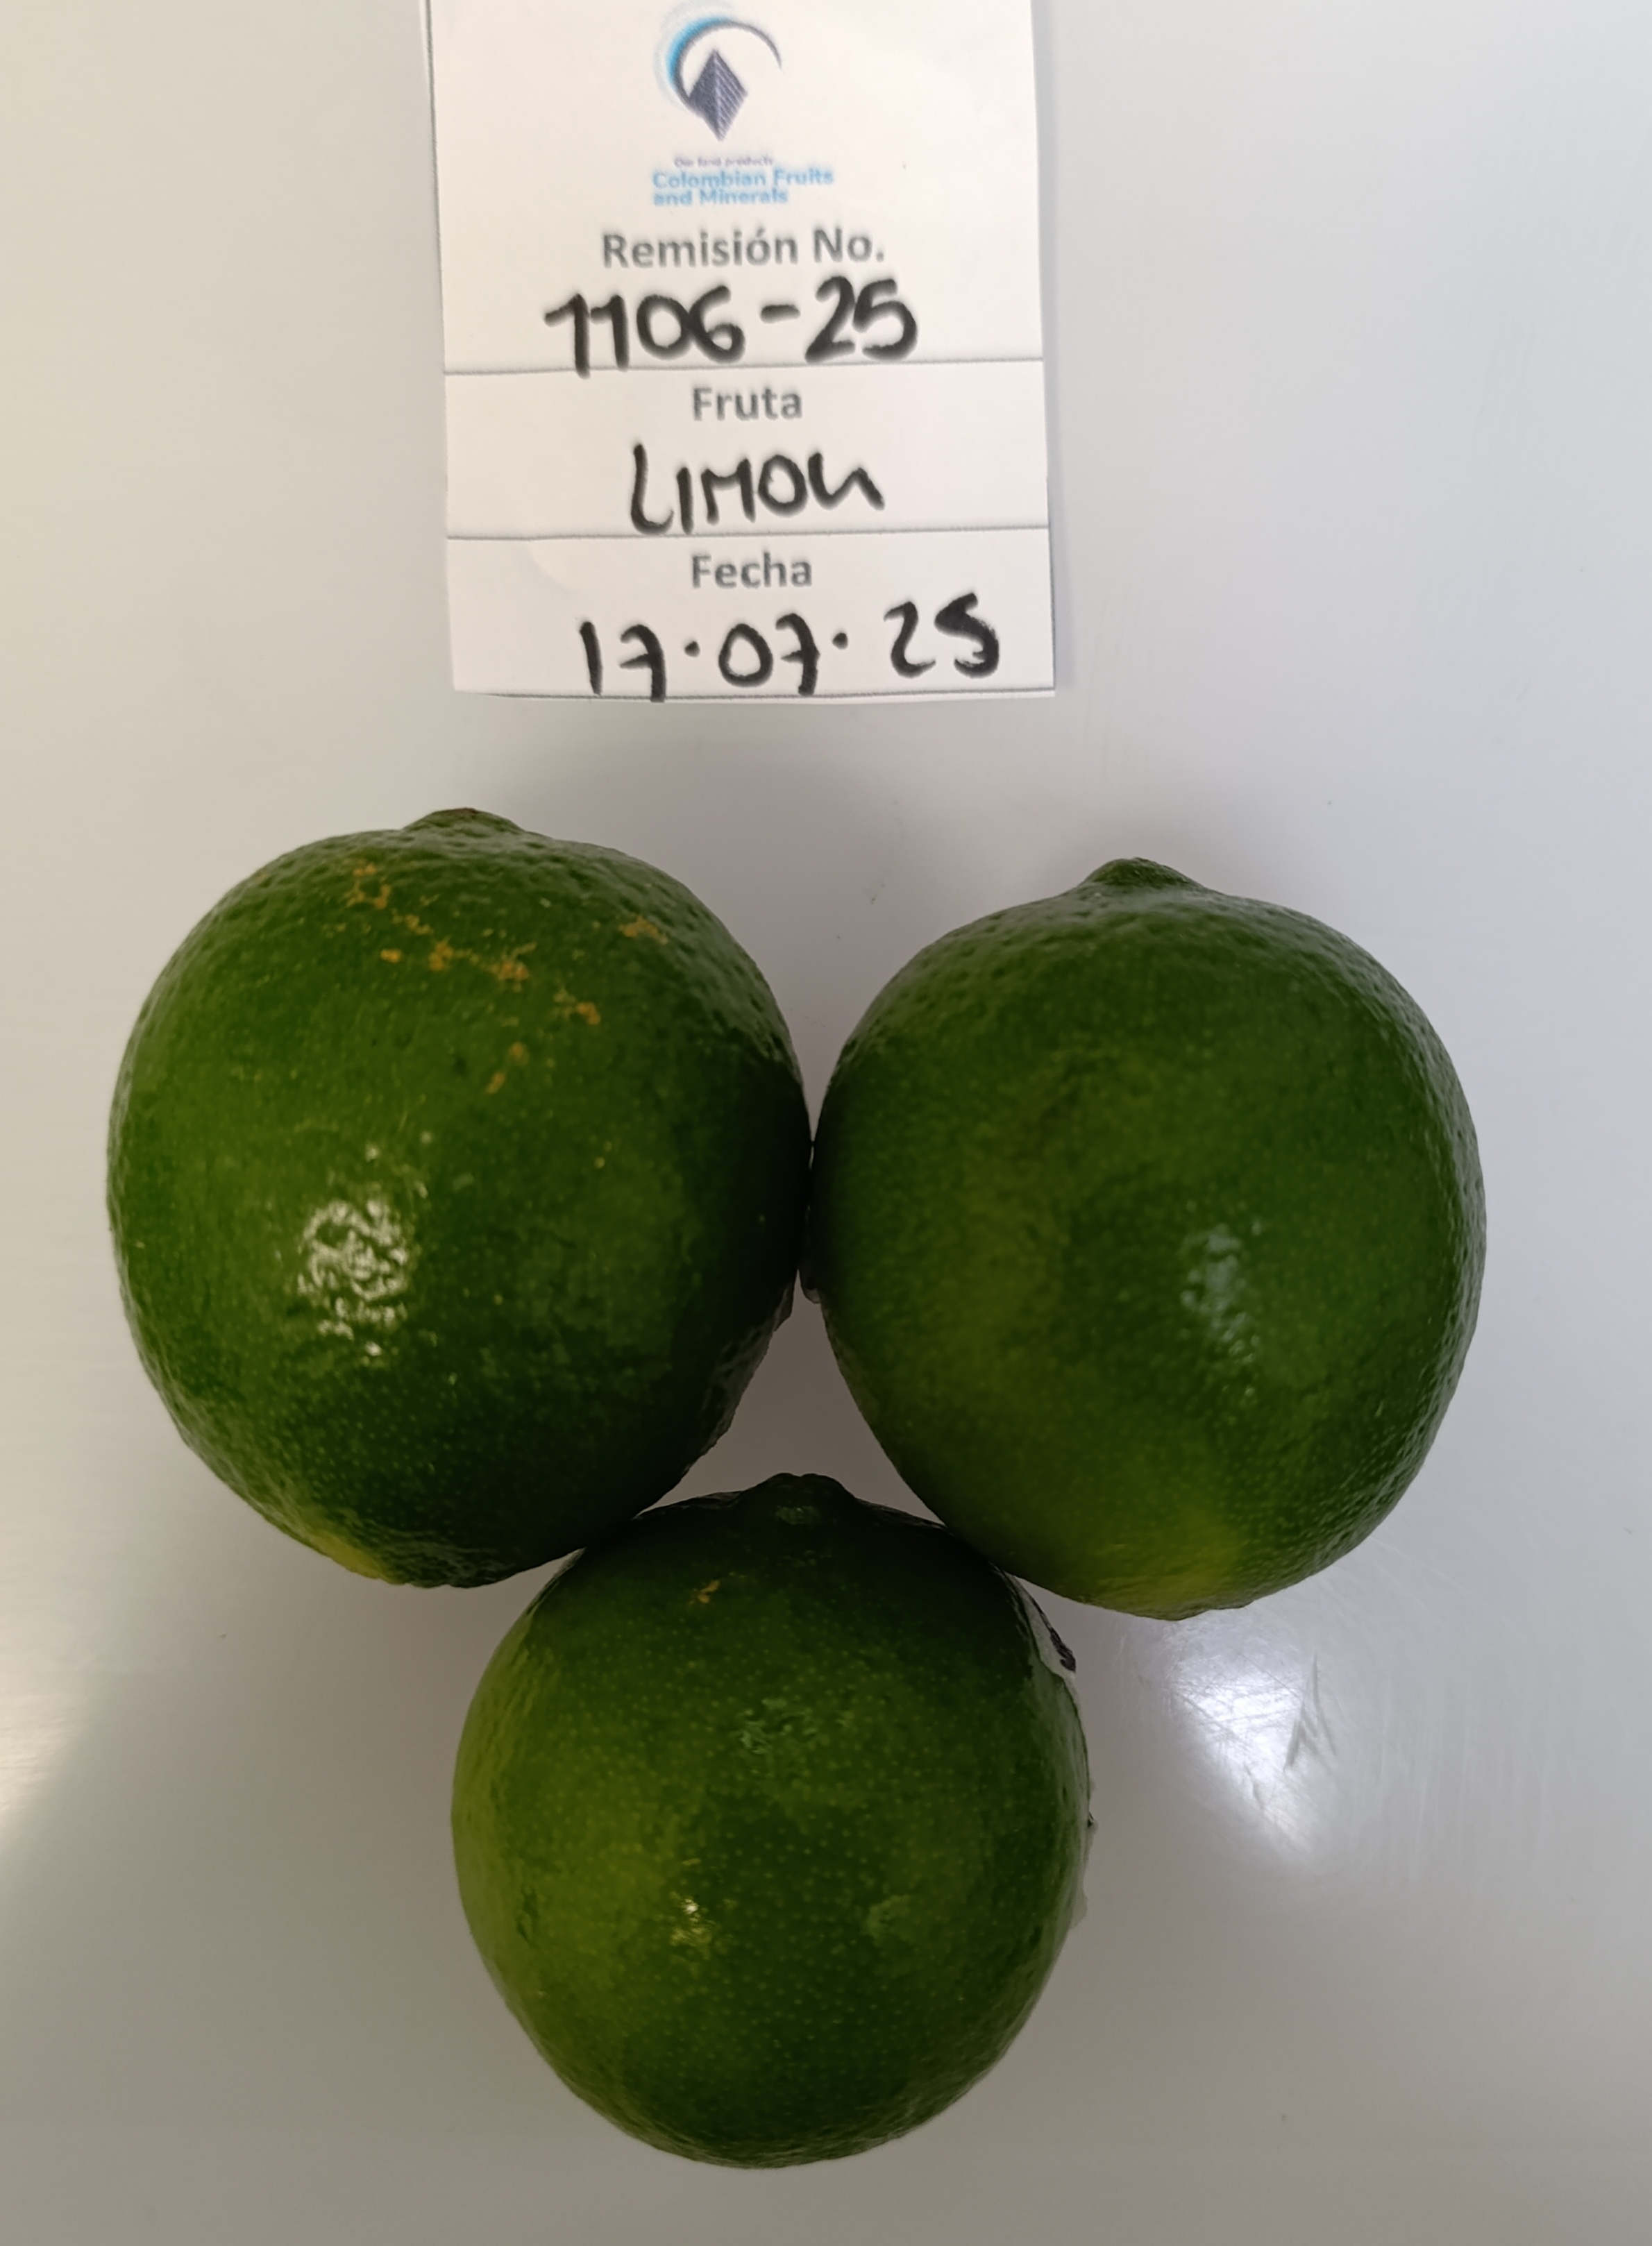 Our best products
Colombian Fruits
and Minerals
Remisión No.
1106-25
Fruta
LIMON
Fecha
17.07.25